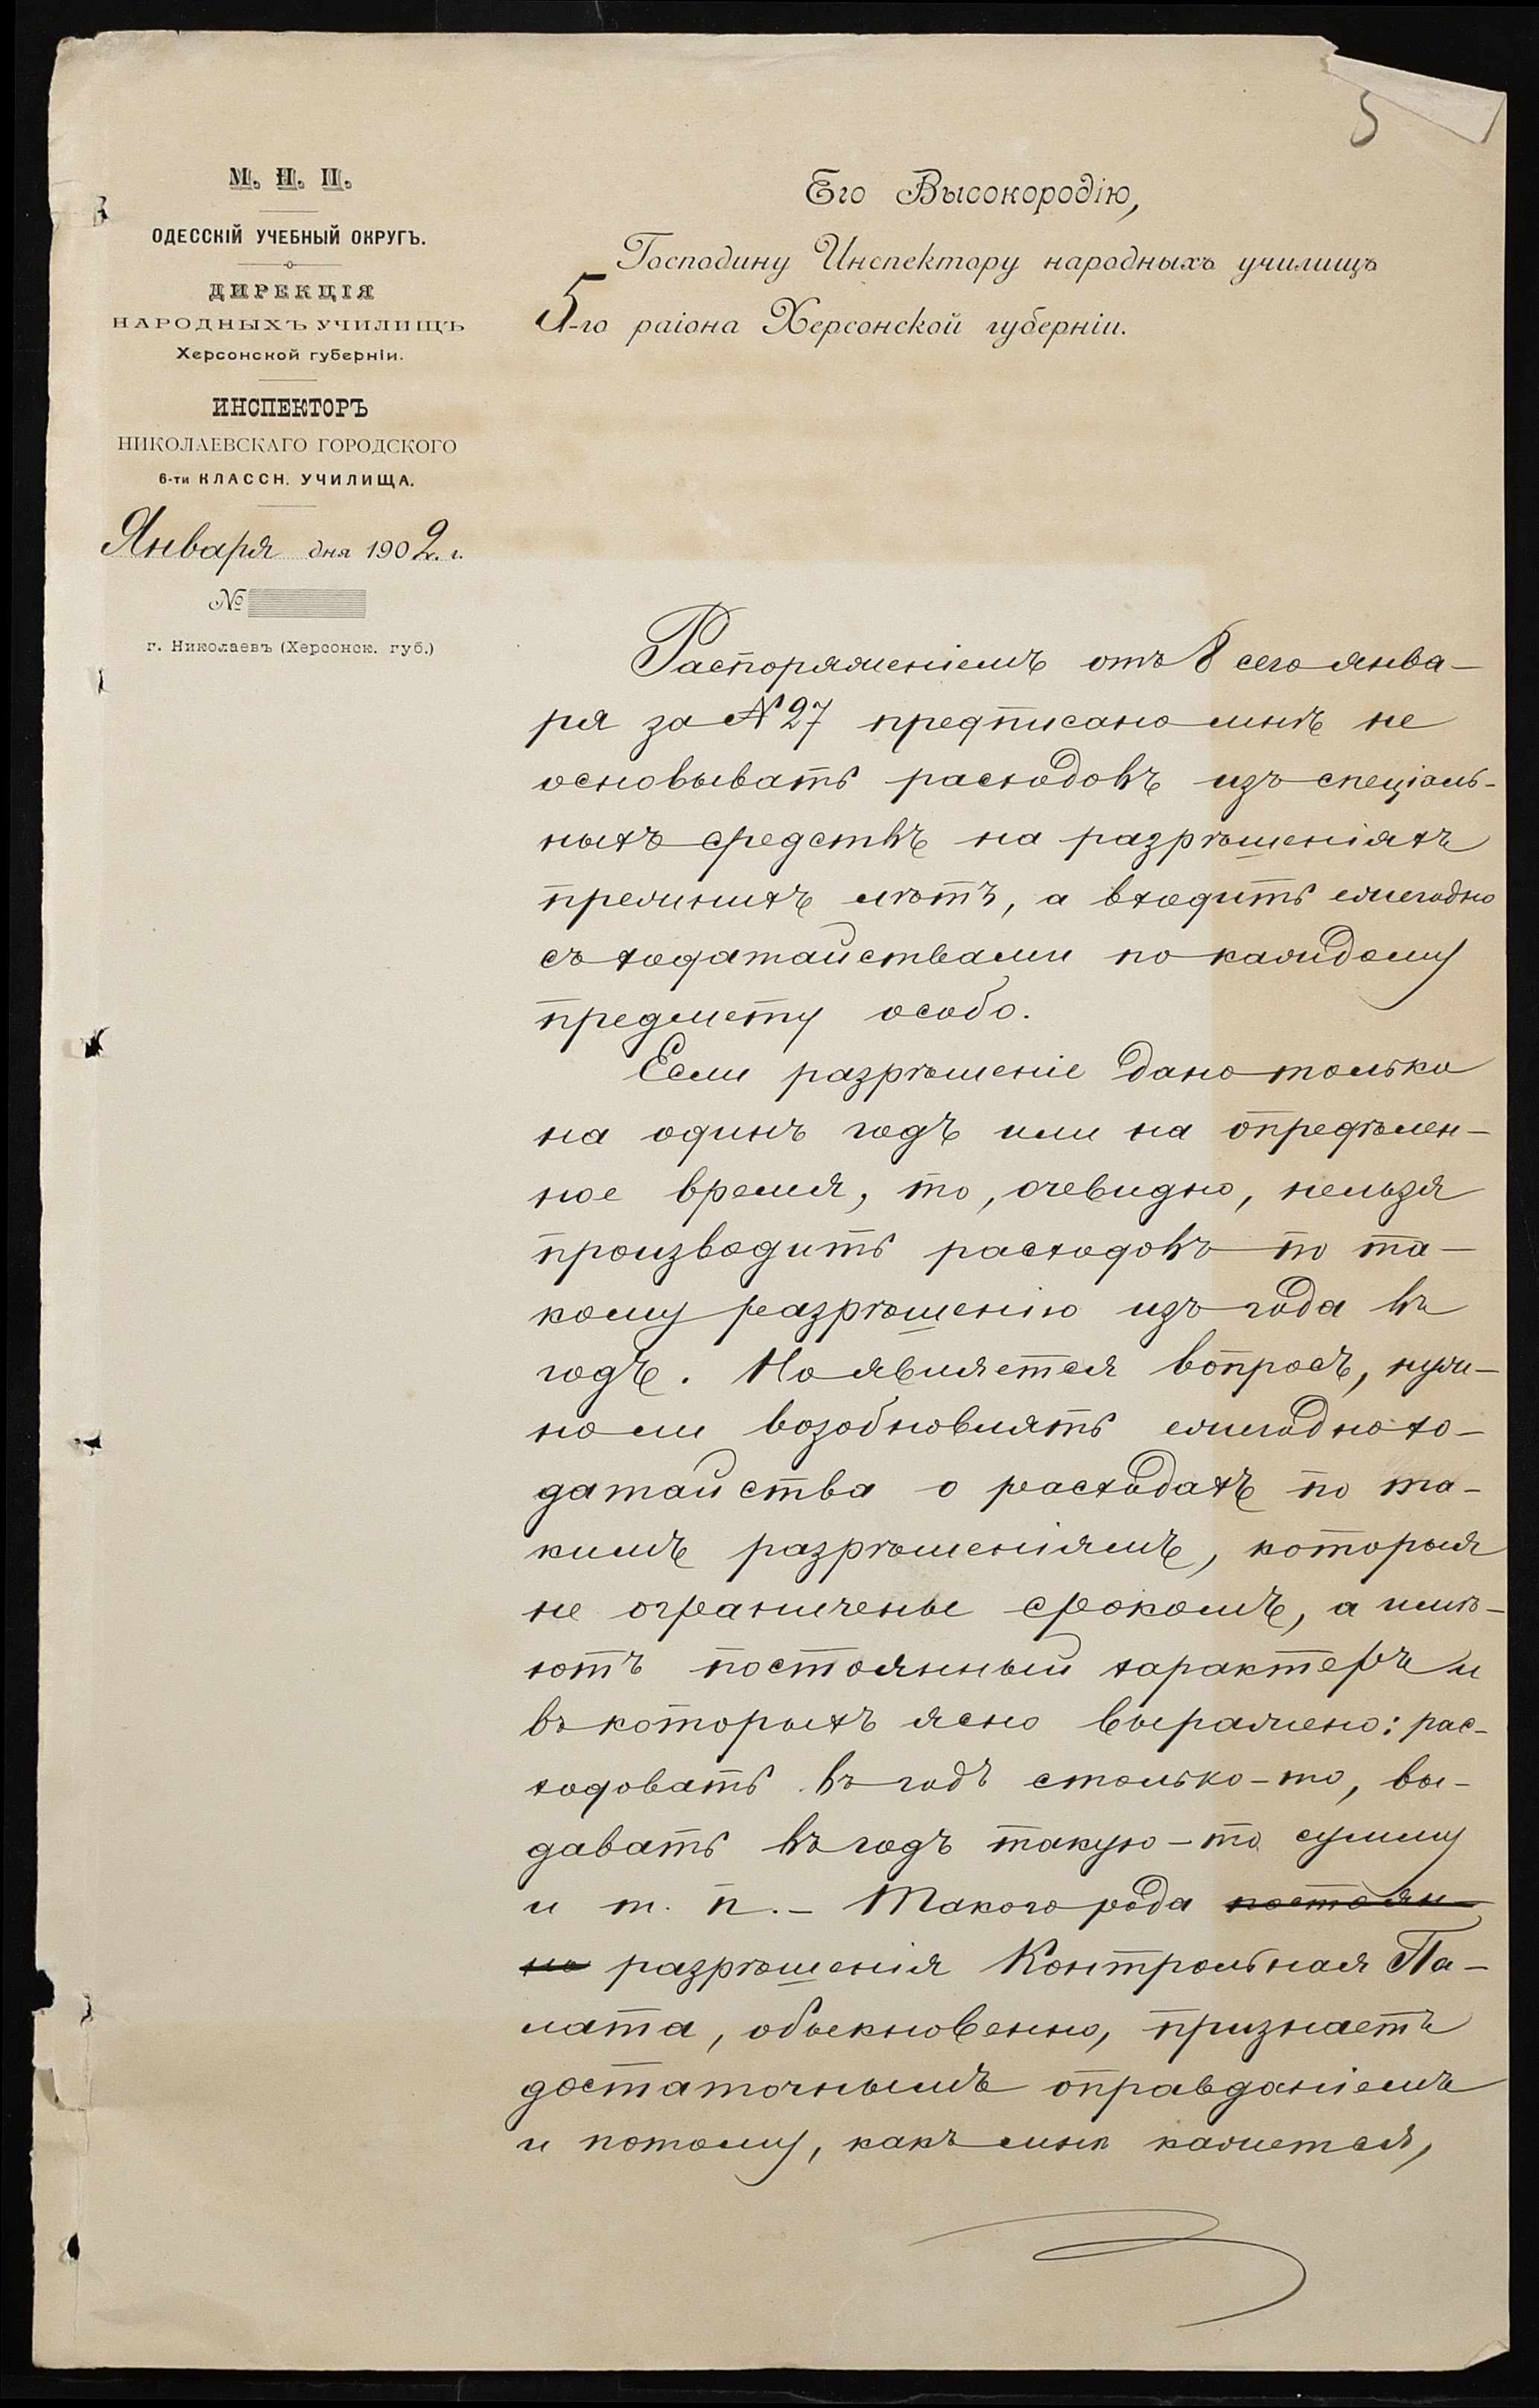 5
М. Н. П.
ОДЕССКІЙ УЧЕБНЫЙ ОКРУГЪ.
ДИРЕКЦІЯ
НАРОДНЫХЪ УЧИЛИЩЪ
Херсонской губерніи.
ИНСПЕКТОРЪ
НИКОЛАЕВСКАГО ГОРОДСКОГО
6-ти КЛАССН. УЧИЛИЩА.
Января дня 1902 г.
№
г. Николаевъ (Херсонск. губ.)
Его Высокородію,
Господину Инспектору народныхъ училищъ
5-го раіона Херсонской губерніи.
Распоряженіемъ отъ 8 сего янва-
ря за № 27 предписано мнѣ не
основывать расходовъ изъ спеціаль-
ныхъ средствъ на разрѣшеніяхъ
прежнихъ лѣтъ, а входить ежегодно
съ ходатайствами по каждому
предмету особо.
Если разрѣшеніе дано только
на одинъ годъ или на опредѣлен-
ное время, то, очевидно, нельзя
производить расходовъ по та-
кому разрѣшенію изъ года въ
годъ. Но является вопросъ, нуж-
но ли возобновлять ежегодно хо-
датайства о расходахъ по та-
кимъ разрѣшеніямъ, которыя
не ограничены срокомъ, а имѣ-
ютъ постоянный характеръ и
въ которыхъ ясно выражено: рас-
ходовать въ годъ столько-то, вы-
давать въ годъ такую-то сумму
и т. п. - Такого рода постоян-
но разрѣшенія Контрольная Па-
лата, обыкновенно, признаетъ
достаточнымъ оправданіемъ
и потому, какъ мнѣ кажется,